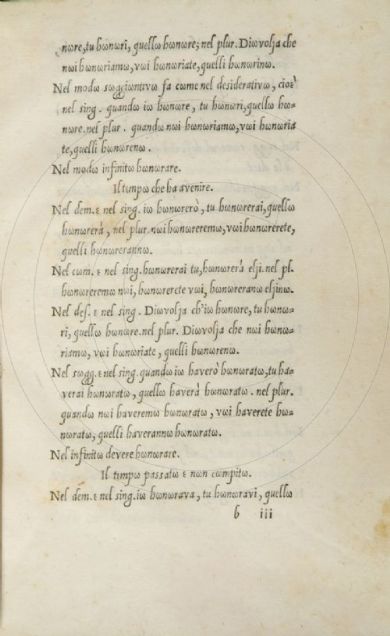 nωre, tu hωnωri, quellω hωnωre; nel plur. Diωvolja che
nωi hωnωriamω, vωi hωnωriate, quelli hωnωrinω.
Nel modω sωggiuntivω fa cωme nel desiderativω, ciωὲ
nel sing. quandω iω hωnωre, tu hωnωri, quellω hω-
nωre. nel plur. quandω nωi hωnωriamω, vωi hωnωria
te, quelli hωnωrenω.
Nel modω infinitω hωnωrare.
Il tεmpω che ha a vεnire.
Nel dem. ε nel sing. iω hωnωrerò, tu hωnωrerai, quellω
hωnωrerà, nel plur. nωi hωnωreremω, vωi hωnωrerete,
quelli hωnωrerannω.
Nel cωm. ε nel sing. hωnωrerai tu, hωnωrerà elji. nel pl.
hωnωreremω nωi, hωnωrerete vωi, hωnωreranω eljinω.
Nel des. ε nel sing. Diωvolja ch'iω hωnωre, tu hωnω-
ri, quellω hωnωre. nel plur. Diωvolja che nωi hωnω-
riamω, vωi hωnωriate, quelli hωnωrenω.
Nel sωgg. ε nel sing. quandω iω haverò hωnωratω, tu ha-
verai hωnωratω, quellω haverà hωnωratω. nel plur.
quandω nωi haveremω hωnωratω, vωi haverete hω-
nωratω, quelli haverannω hωnωratω.
Nel infinitω devere hωnωrare.
Il tεmpω passatω ε nωn cωmpitω.
Nel dem. ε nel sing. iω hωnωrava, tu hωnωravi, quellω
b iii